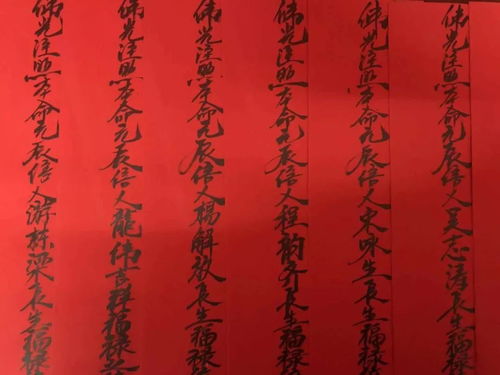 佛光注照本命元辰信人吴志涛长生福禄
佛光注照本命元辰信人宋咏生长生福禄
佛光注照本命元辰信人程韵齐长生福禄
佛光注照本命元辰信人楊解放长生福禄
佛光注照本命元辰信人龍伟吉祥福禄
佛光注照本命元辰信人游栋梁长生福禄